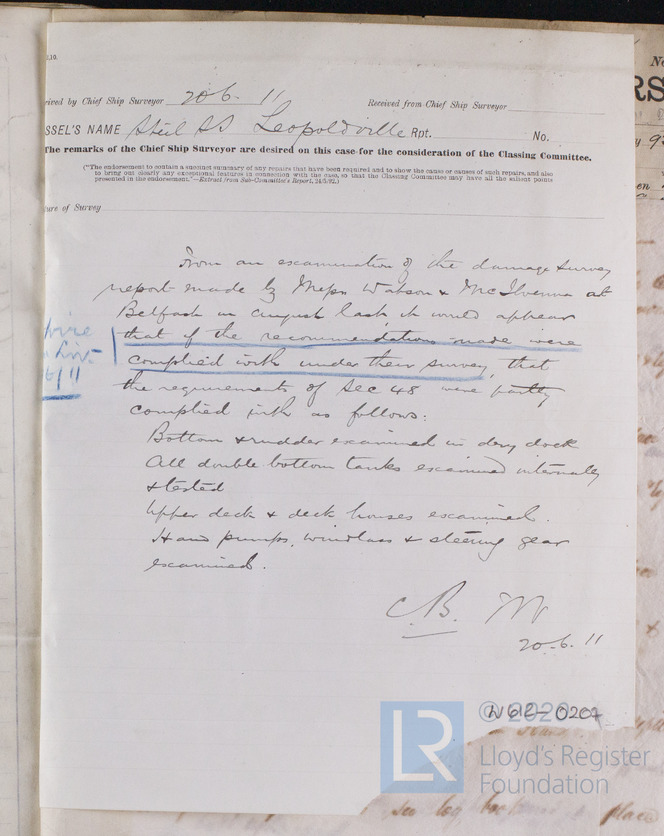 Received by Chief Ship Surveyor 20.6.11 Received from Chief Ship Surveyor
SSEL'S NAME Steel SS Leopoldville Rpt. No.
The remarks of the Chief Ship Surveyor are desired on this case for the consideration of the Classing Committee.
("The endorsement to contain a succinct summary of any repairs that have been required and to show the cause or causes of such repairs, and also
to bring out clearly any exceptional features in connection with the case, so that the Classing Committee may have all the salient points
presented in the endorsement."—Extract from Sub-Committee's Report, 24/5/92.)
ture of Survey
From an examination of the damage survey
report made by Messrs Watson & McIlvenna at
Belfast in August last it would appear
that if the recommendations made were
complied with under their survey, that
the requirements of Sec 48 were partly
complied with as follows:
Bottom & rudder examined in dry dock
All double bottom tanks examined internally
& tested
Upper deck & deck houses examined.
Hand pumps, windlass & steering gear
examined.
C.B.
20.6.11
W612-0207
© 2020
LR
Lloyd's Register
Foundation
see log book
place